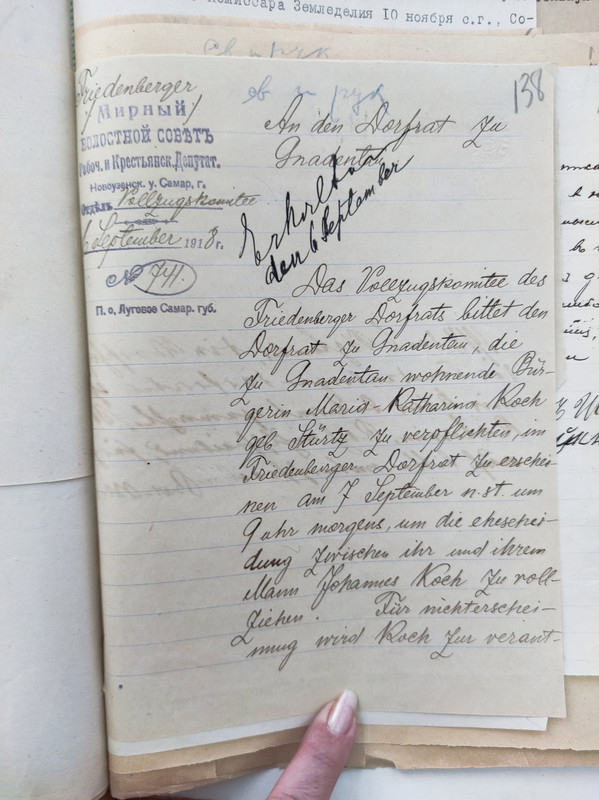 Комиссара Земледелия 10 ноября с.г., Со-
138
Friedenberger
Мирный
ВОЛОСТНОЙ СОВѢТЪ
Рабоч. и Крестьянск. Депутат.
Новоузенск. у. Самар. г.
Отдѣлъ Vollzugskomitee
6 September 1918 г.
№ 741.
П. о. Луговое Самар. губ.
An den Dorfrat zu
Gnadentau
Erhalten
den 6 September
Das Vollzugskomitee des
Friedenberger Dorfrats bittet den
Dorfrat zu Gnadentau, die
zu Gnadentau wohnende Bür-
gerin Maria-Katharina Koch
geb Stürtz zu verpflichten, im
Friedenberger Dorfrat zu erschei-
nen am 7 September n. st. um
9 uhr morgens, um die eheschei-
dung zwischen ihr und ihrem
Mann Johannes Koch zu voll-
ziehen. Für nichterschei-
nung wird Koch zur verant-